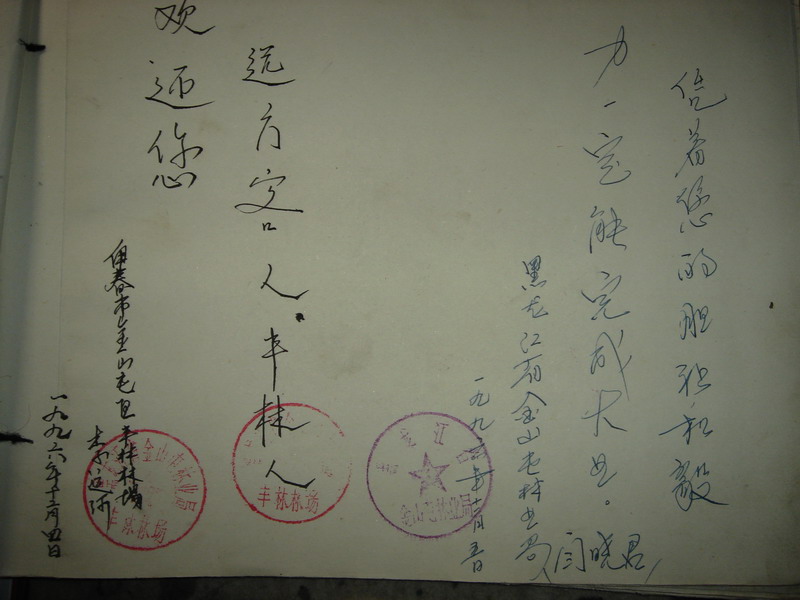 凭着您的胆识和毅
力一定能完成大业。
黑龙江省金山屯林业局
闫晓君
一九九六年十一月五日
远方客人。丰林人
欢迎您
伊春市金山屯区丰林林場
一九九六年十一月四日
丰林林场
金山屯林业局
丰林林场